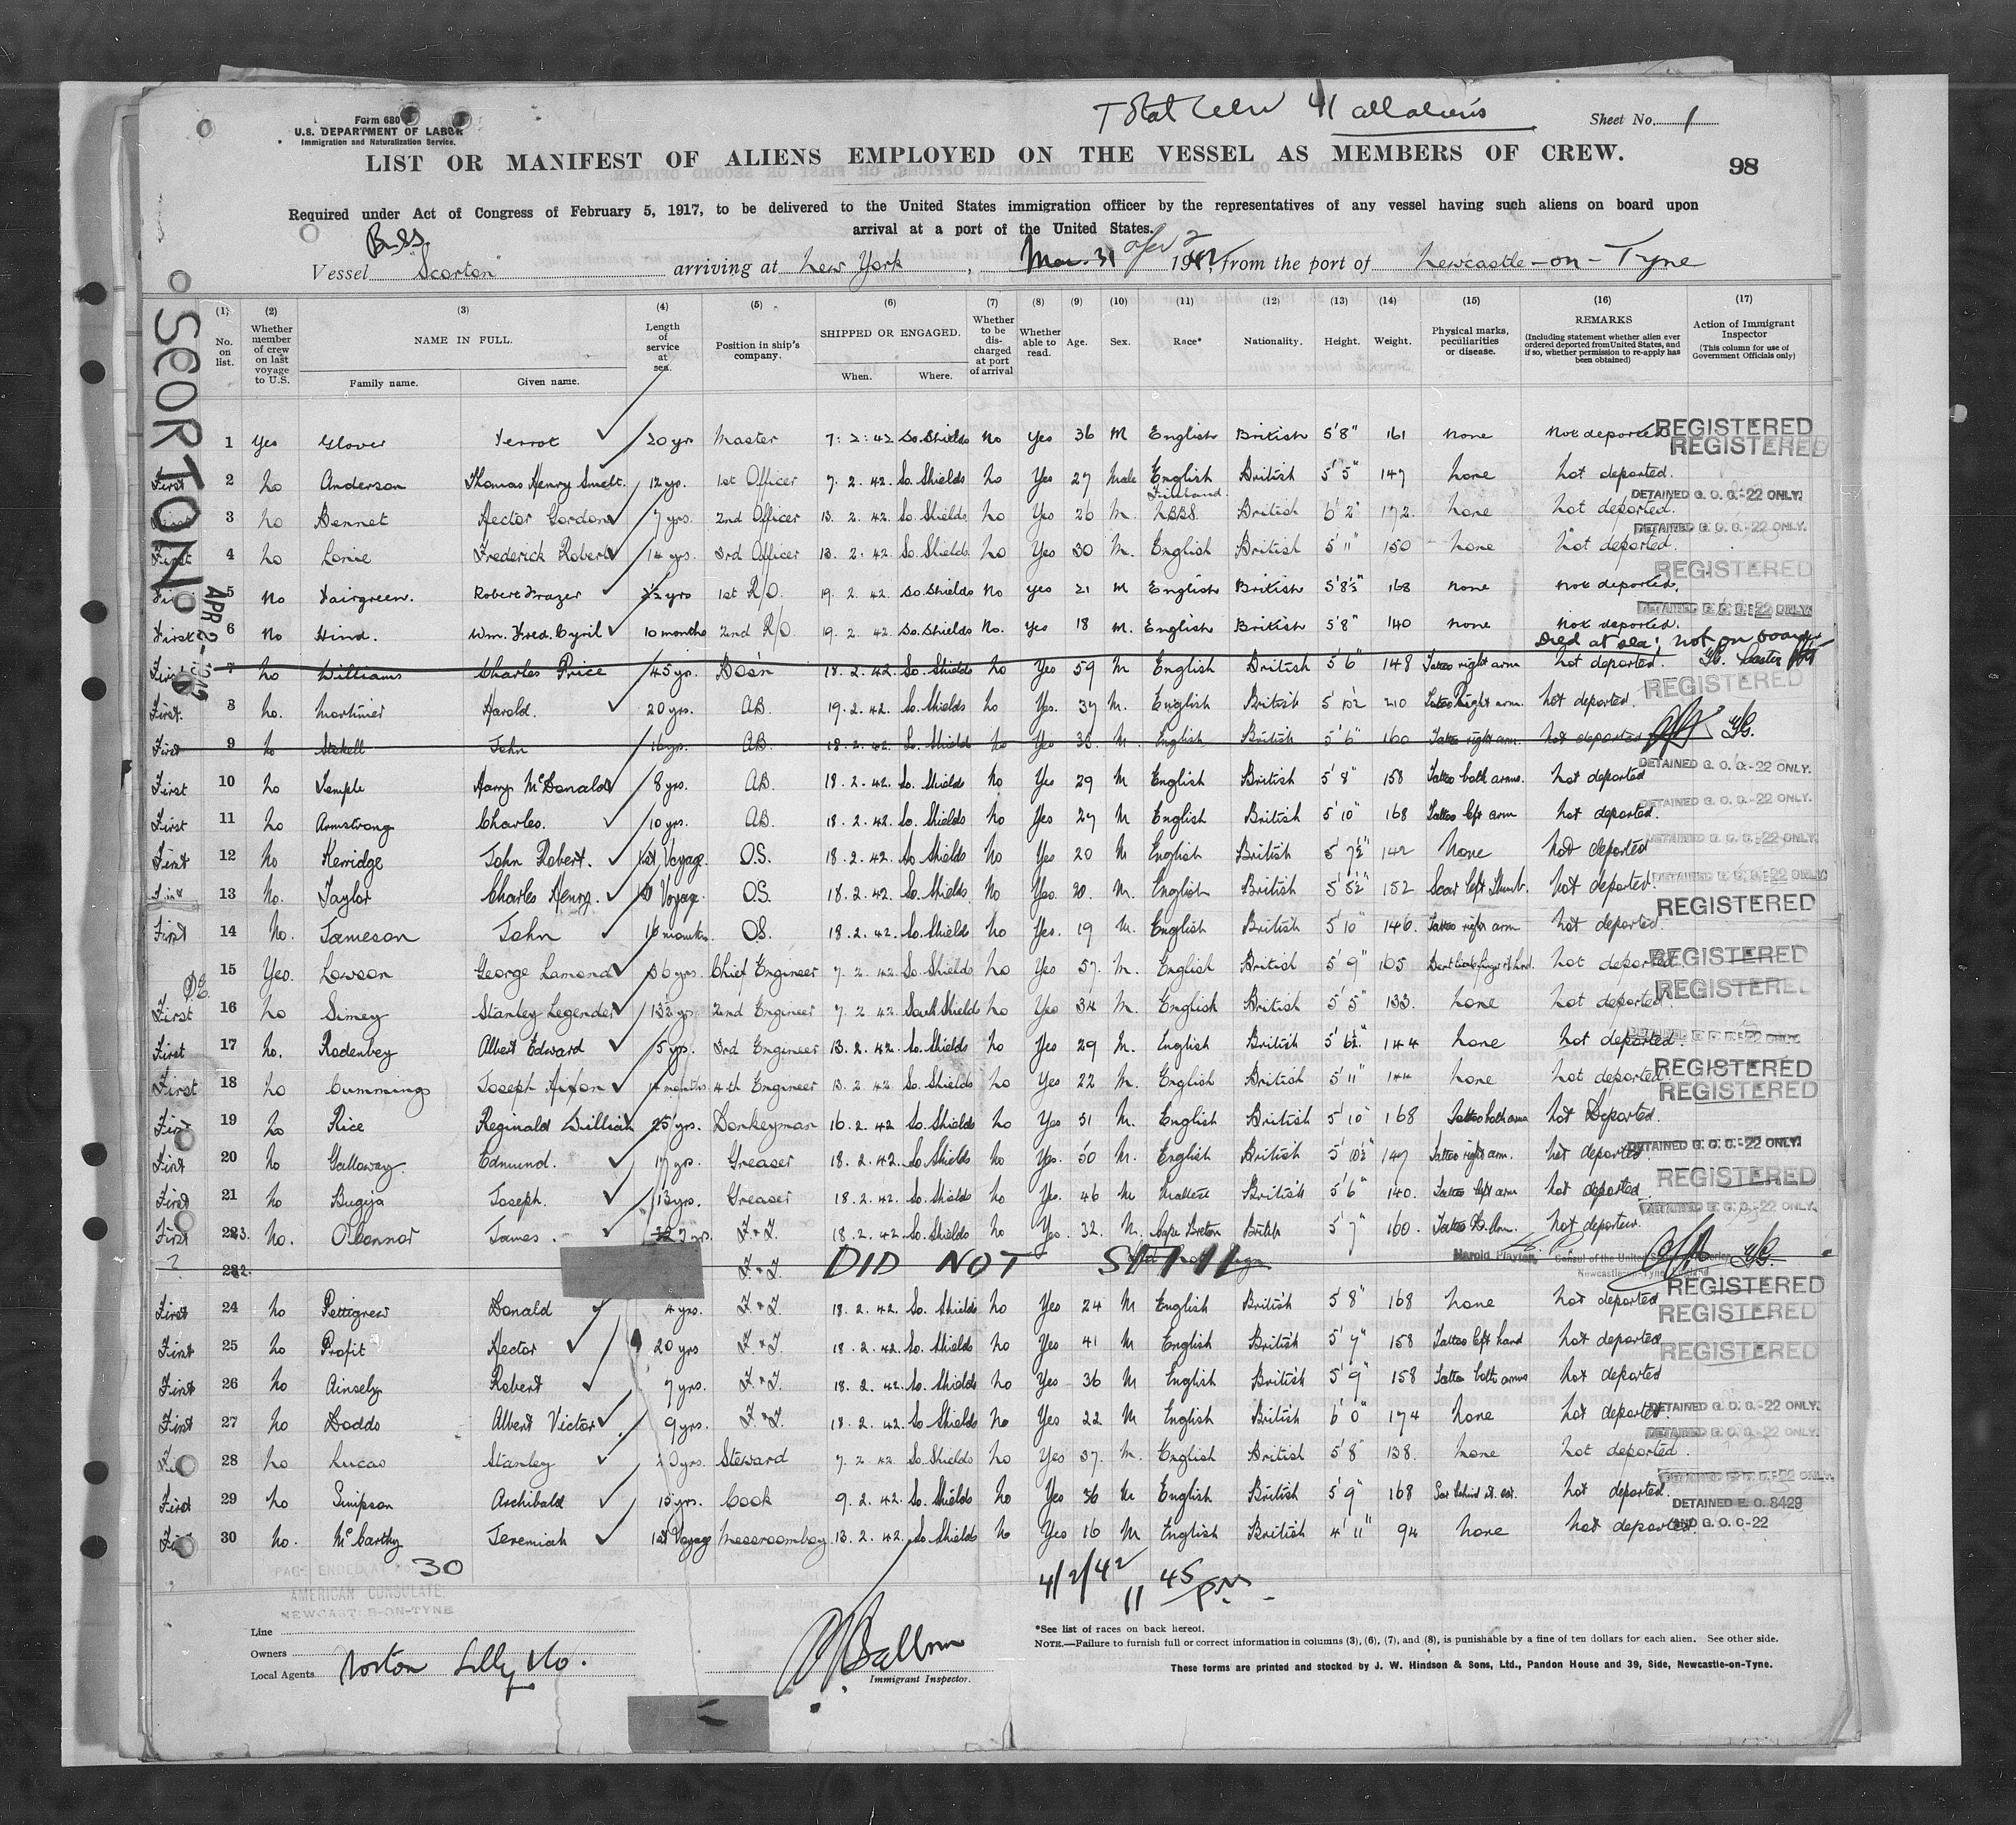 Total Crew 41 all aliens
Form 680
U.S. DEPARTMENT OF LABOR
Immigration and Naturalization Service.
Sheet No. 1
LIST OR MANIFEST OF ALIENS EMPLOYED ON THE VESSEL AS MEMBERS OF CREW.
98
Required under Act of Congress of February 5, 1917, to be delivered to the United States immigration officer by the representatives of any vessel having such aliens on board upon
arrival at a port of the United States.
Br. SS.
Vessel "Scorton" arriving at New York, Mar. 31 Apr 2 1942, from the port of Newcastle-on-Tyne
SCORTON
APR 2 - 1942
(1) No. on list.
(2) Whether member of crew on last voyage to U.S.
(3) NAME IN FULL. Family name. Given name.
(4) Length of service at sea.
(5) Position in ship's company.
(6) SHIPPED OR ENGAGED. When. Where.
(7) Whether to be discharged at port of arrival
(8) Whether able to read.
(9) Age.
(10) Sex.
(11) Race*
(12) Nationality.
(13) Height.
(14) Weight.
(15) Physical marks, peculiarities or disease.
(16) REMARKS (Including statement whether alien ever ordered deported from United States, and if so, whether permission to re-apply has been obtained)
(17) Action of Immigrant Inspector (This column for use of Government Officials only)
1 Yes Glover Terrot 20 yrs Master 7.2.42 So. Shields No Yes 36 M English British 5'8" 161 None Not deported REGISTERED
REGISTERED
First 2 No Anderson Thomas Henry Smelt 12 yrs. 1st Officer 7.2.42. So. Shields No Yes 27 Male English British 5'5" 147 None Not deported.
DETAINED G. O. C.-22 ONLY.
3 No Bennet Hector Gordon 7 yrs. 2nd Officer 13.2.42. So. Shields No Yes 26 M. British 6'2" 172. None Not deported.
DETAINED G. O. C.-22 ONLY.
First 4 No Lonie Frederick Robert 14 yrs. 3rd Officer 13.2.42. So. Shields No Yes 30 M. English British 5'11" 150 None Not deported.
REGISTERED
5 No Fairgreen. Robert Frazer yrs 1st R/O. 19.2.42. So. Shields No Yes 21 M English British 5'8½" 168 None Not deported.
DETAINED G. O. C.-22 ONLY.
First 6 No Hind. Wm. Fred. Cyril 10 months 2nd R/O. 19.2.42. So. Shields No. Yes 18 M. English British 5'8" 140 None Not deported.
Died at sea; not on board
First 7 No Williams Charles Price 45 yrs. Bos'n 18.2.42. So. Shields No Yes 59 M English British 5'6" 148 Tattoo right arm Not deported.
REGISTERED
First. 8 No. Mortimer Harold. 20 yrs. AB. 19.2.42. So. Shields No Yes. 37 M. English British 5'10½ 210 Tattoo Right arm. Not deported.
First 9 No John 16 yrs. AB. 18.2.42. So. Shields No Yes M. English British 5'6" 160 Tattoo right arm. Not deported
DETAINED G. O. C.-22 ONLY.
First 10 No Temple Harry McDonald 8 yrs. AB. 18.2.42. So. Shields No Yes 29 M English British 5'8" 158 Tattoo both arms. Not deported
DETAINED G. O. C.-22 ONLY.
First 11 No Armstrong Charles. 10 yrs. AB. 18.2.42. So. Shields No Yes 27 M English British 5'10" 168 Tattoo left arm Not deported.
DETAINED G. O. C.-22 ONLY.
First 12 No Kerridge John Robert. 1st Voyage. O.S. 18.2.42. So. Shields No Yes 20 M English British 5'7½" 142 None Not deported
DETAINED G. O. C.-22 ONLY.
13 No. Taylor Charles Henry. 1st Voyage. O.S. 18.2.42. So. Shields. No Yes. 20. M. English British 5'5½" 152 Scar left thumb. Not deported.
REGISTERED
First 14 No. Jameson John months. O.S. 18.2.42. So. Shields No Yes. 19 M. English British 5'10" 146. Tattoo right arm Not deported.
15 Yes. Lawson George Lamond 36 yrs. Chief Engineer 7.2.42. So. Shields No Yes 57. M. English British 5'9" 165 Not deported. REGISTERED
REGISTERED
First 16 No Simey Stanley Legender 13½ yrs. 2nd Engineer 7.2.42. South Shields No Yes 34 M. English British 5'5" 133. None Not deported
First 17 No. Rodenbey Albert Edward 5 yrs. 3rd Engineer 13.2.42. So. Shields No Yes 29 M. English British 5'6½" 144 None Not deported DETAINED G. O. C.-22 ONLY.
First 18 No Cummings Joseph Anton 14 months 4th Engineer 13.2.42. So. Shields No Yes 22 M. English British 5'11" 144 None Not deported. REGISTERED
REGISTERED
First 19 No Rice Reginald William 25 yrs. Donkeyman 16.2.42 So. Shields No Yes 51 M. English British 5'10" 168 Tattoo both arms Not Deported.
First 20 No Galloway. Edmund. 17 yrs. Greaser 18.2.42. So. Shields No Yes. 50 M. English British 5'10½" 147 Tattoo right arm. Not deported. DETAINED G. O. C.-22 ONLY.
REGISTERED
First 21 No Bugija Joseph. 13 yrs. Greaser 18.2.42. So. Shields No Yes. 46 M Maltese British 5'6" 140. Tattoo left arm Not deported.
DETAINED G. O. C.-22 ONLY.
First 23. No. O'Connor James. 7 yrs. F.&T. 18.2.42. So. Shields No Yes. 32. M. Cape Breton British 5'7" 160. Tattoo R. Arm. Not deported.
? 22. F.&T. DID NOT SAIL
Harold Playter, Consul of the United States of America
Newcastle-on-Tyne, England
REGISTERED
First 24 No Pettigrew Donald 4 yrs. F.&T. 18.2.42. So. Shields No Yes 24 M English British 5'8" 168 None Not deported
REGISTERED
First 25 No Profit Hector 20 yrs F.&T. 18.2.42. So. Shields No Yes 41 M English British 5'7" 158 Tattoo left hand Not deported
REGISTERED
First 26 No Ainsely Robert 7 yrs. F.&T. 18.2.42. So. Shields No Yes 36 M English British 5'9" 158 Tattoo both arms Not deported
First 27 No Dodds Albert Victor 9 yrs. F.&T. 18.2.42. So. Shields No Yes 22 M English British 6'0" 174 None Not deported. DETAINED G. O. C.-22 ONLY.
DETAINED G. O. C.-22 ONLY.
28 No Lucas Stanley yrs. Steward 7.2.42. So. Shields No Yes 37. M. English British 5'8" 138. None Not deported.
DETAINED G. O. C.-22 ONLY.
First 29 No Simpson Archibald 15 yrs. Cook 9.2.42. So. Shields No Yes 36 M English British 5'9" 168 Scar behind rt. ear. Not deported.
DETAINED E. O. 8429
AND G. O. C-22
30 No. McCarthy Jeremiah 1st Voyage Messroomboy 13.2.42. So. Shields No Yes 16 M English British 4'11" 94 None Not deported.
PAGE ENDED AT 30
AMERICAN CONSULATE,
NEWCASTLE-ON-TYNE
4/2/42 11 45 P.M.
Line
Owners
Local Agents Norton Lilly & Co.
Immigrant Inspector.
*See list of races on back hereof.
NOTE.—Failure to furnish full or correct information in columns (3), (6), (7), and (8), is punishable by a fine of ten dollars for each alien. See other side.
These forms are printed and stocked by J. W. Hindson & Sons, Ltd., Pandon House and 39, Side, Newcastle-on-Tyne.